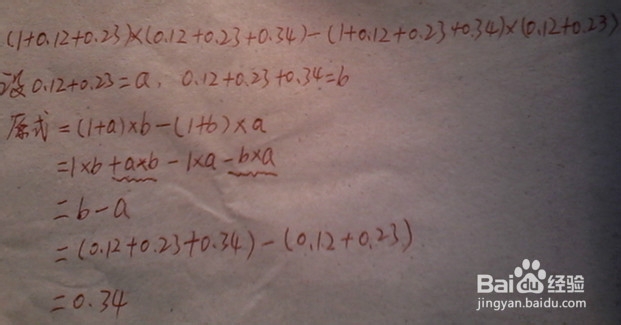 (1+0.12+0.23)×(0.12+0.23+0.34)-(1+0.12+0.23+0.34)×(0.12+0.23)
设0.12+0.23=a, 0.12+0.23+0.34=b
原式=(1+a)×b-(1+b)×a
=1×b+a×b-1×a-b×a
=b-a
=(0.12+0.23+0.34)-(0.12+0.23)
=0.34
Baidu经验
jingyan.baidu.com